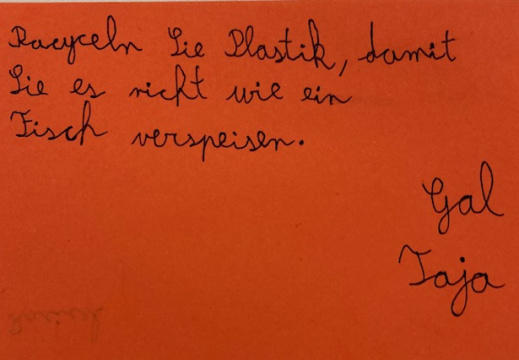 Racyceln Sie Plastik, damit
Sie es nicht wie ein
Fisch verspeisen.
Gal
Taja